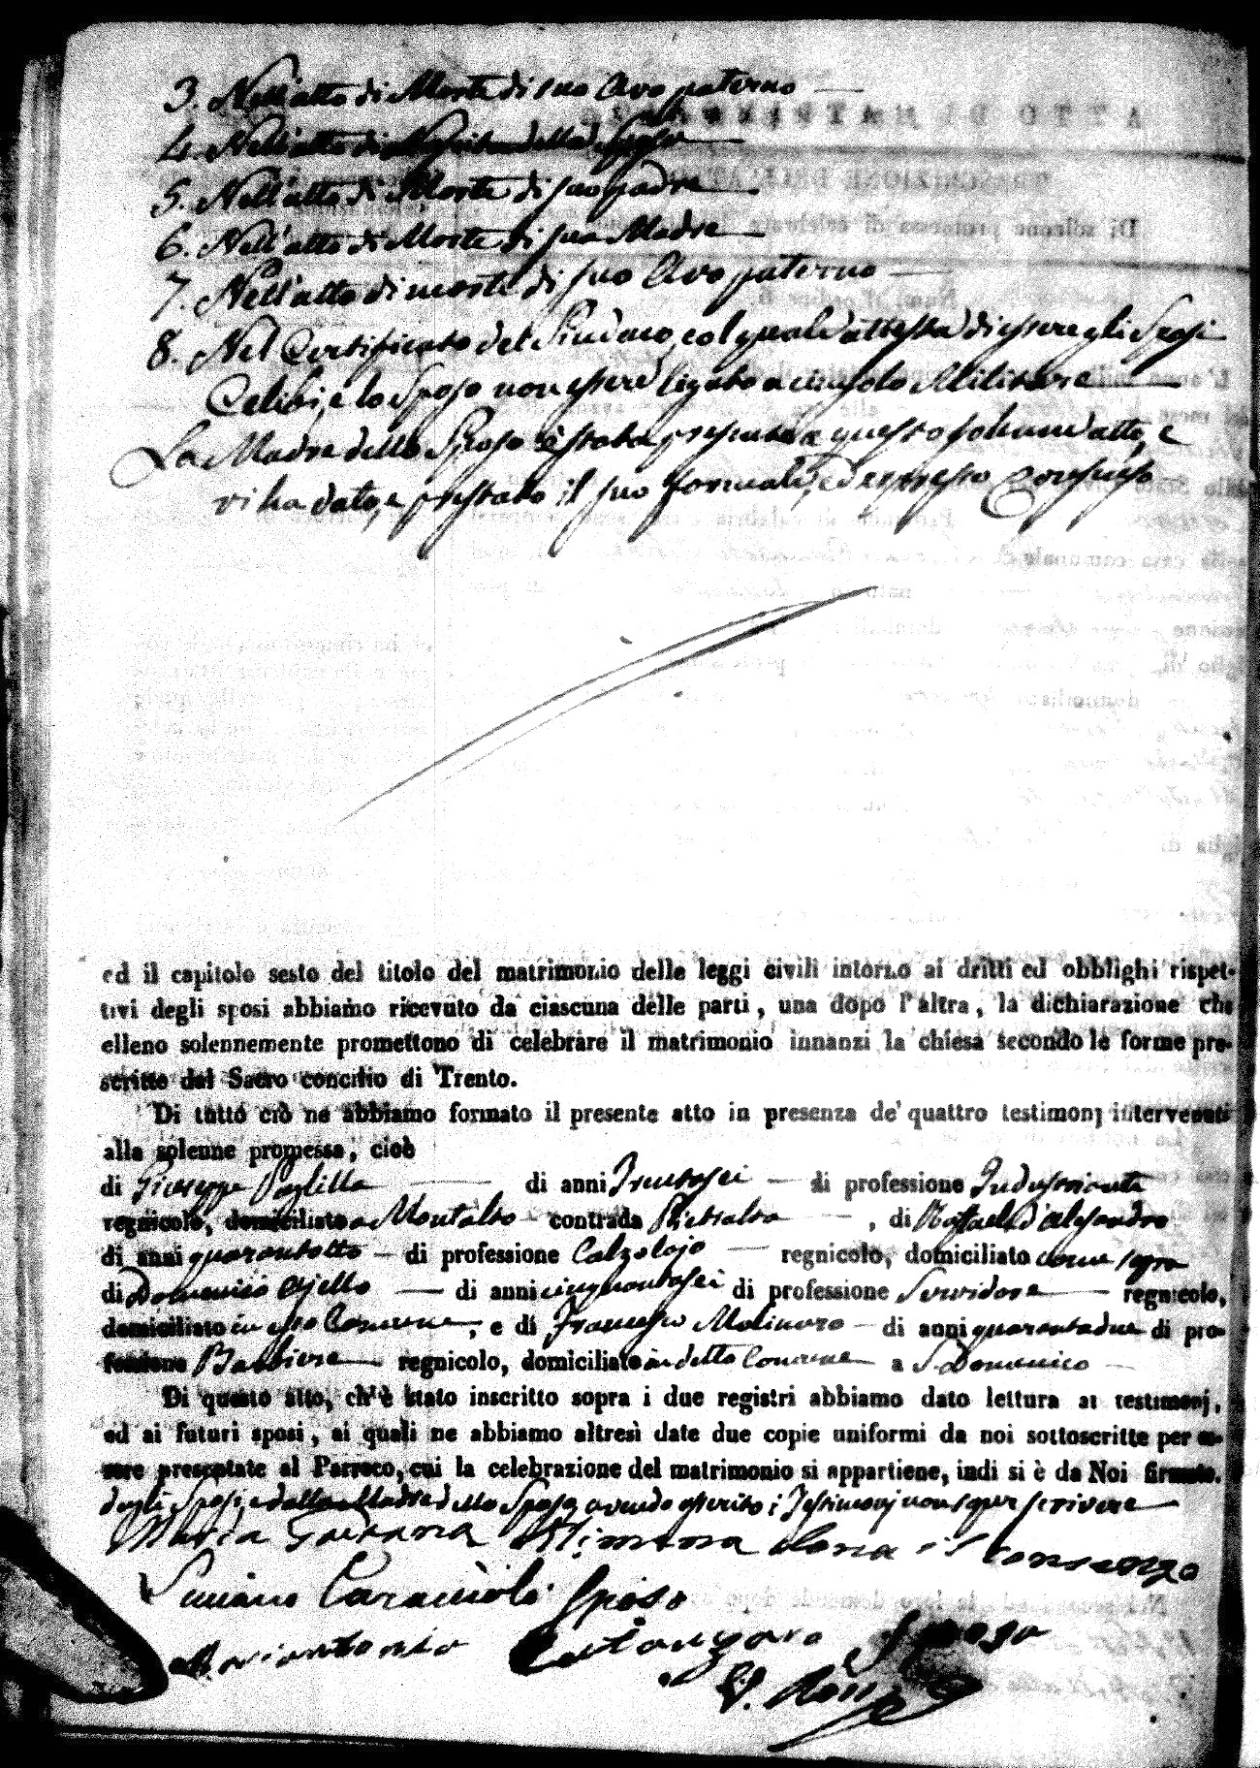 3. Nell'atto di Morte di suo Avo paterno
4. Nell'atto di della Sposa
5. Nell'atto di Morte di suo padre
6. Nell'atto di Morte di sua Madre
7. Nell'atto di morte di suo Avo paterno
8. Nel Certificato del Sindaco, col quale attesta di essere gli Sposi
Celibi, e lo Sposo non essere ligato a vincolo Militare
La Madre dello Sposo è stata presente a questo solenne atto, e
vi ha dato, e prestato il suo formale, ed espresso Consenso
ed il capitolo sesto del titolo del matrimonio delle leggi civili intorno ai dritti ed obblighi rispet-
tivi degli sposi abbiamo ricevuto da ciascuna delle parti, una dopo l'altra, la dichiarazione che
elleno solennemente promettono di celebrare il matrimonio innanzi la chiesa secondo le forme pre-
scritte dal Sacro concilio di Trento.
Di tutto ciò ne abbiamo formato il presente atto in presenza de' quattro testimonj intervenuti
alla solenne promessa, cioè
di Giuseppe Paglilla di anni Trentasei di professione Industriante
regnicolo, domiciliato a Montalto contrada Pietralta, di Raffaele d'Alesandro
di anni quarantotto di professione Calzolajo regnicolo, domiciliato come sopra
di Domenico Ajello di anni cinquantasei di professione Servidore regnicolo,
domiciliato in esso Comune, e di Francesco Molinaro di anni quarantadue di pro-
fessione Barbiere regnicolo, domiciliato in detto Comune a S. Domenico
Di questo atto, ch'è stato inscritto sopra i due registri abbiamo dato lettura ai testimonj,
ed ai futuri sposi, ai quali ne abbiamo altresì date due copie uniformi da noi sottoscritte per es-
sere presentate al Parroco, cui la celebrazione del matrimonio si appartiene, indi si è da Noi firmato.
dagli Sposi, e dalla Madre dello Sposo, avendo asserito i Testimonj non saper scrivere
Maria Gaetana Alimena dona il consenzo
Luciano Caracciolo Sposo
Mariantonia Catanzaro Sposa